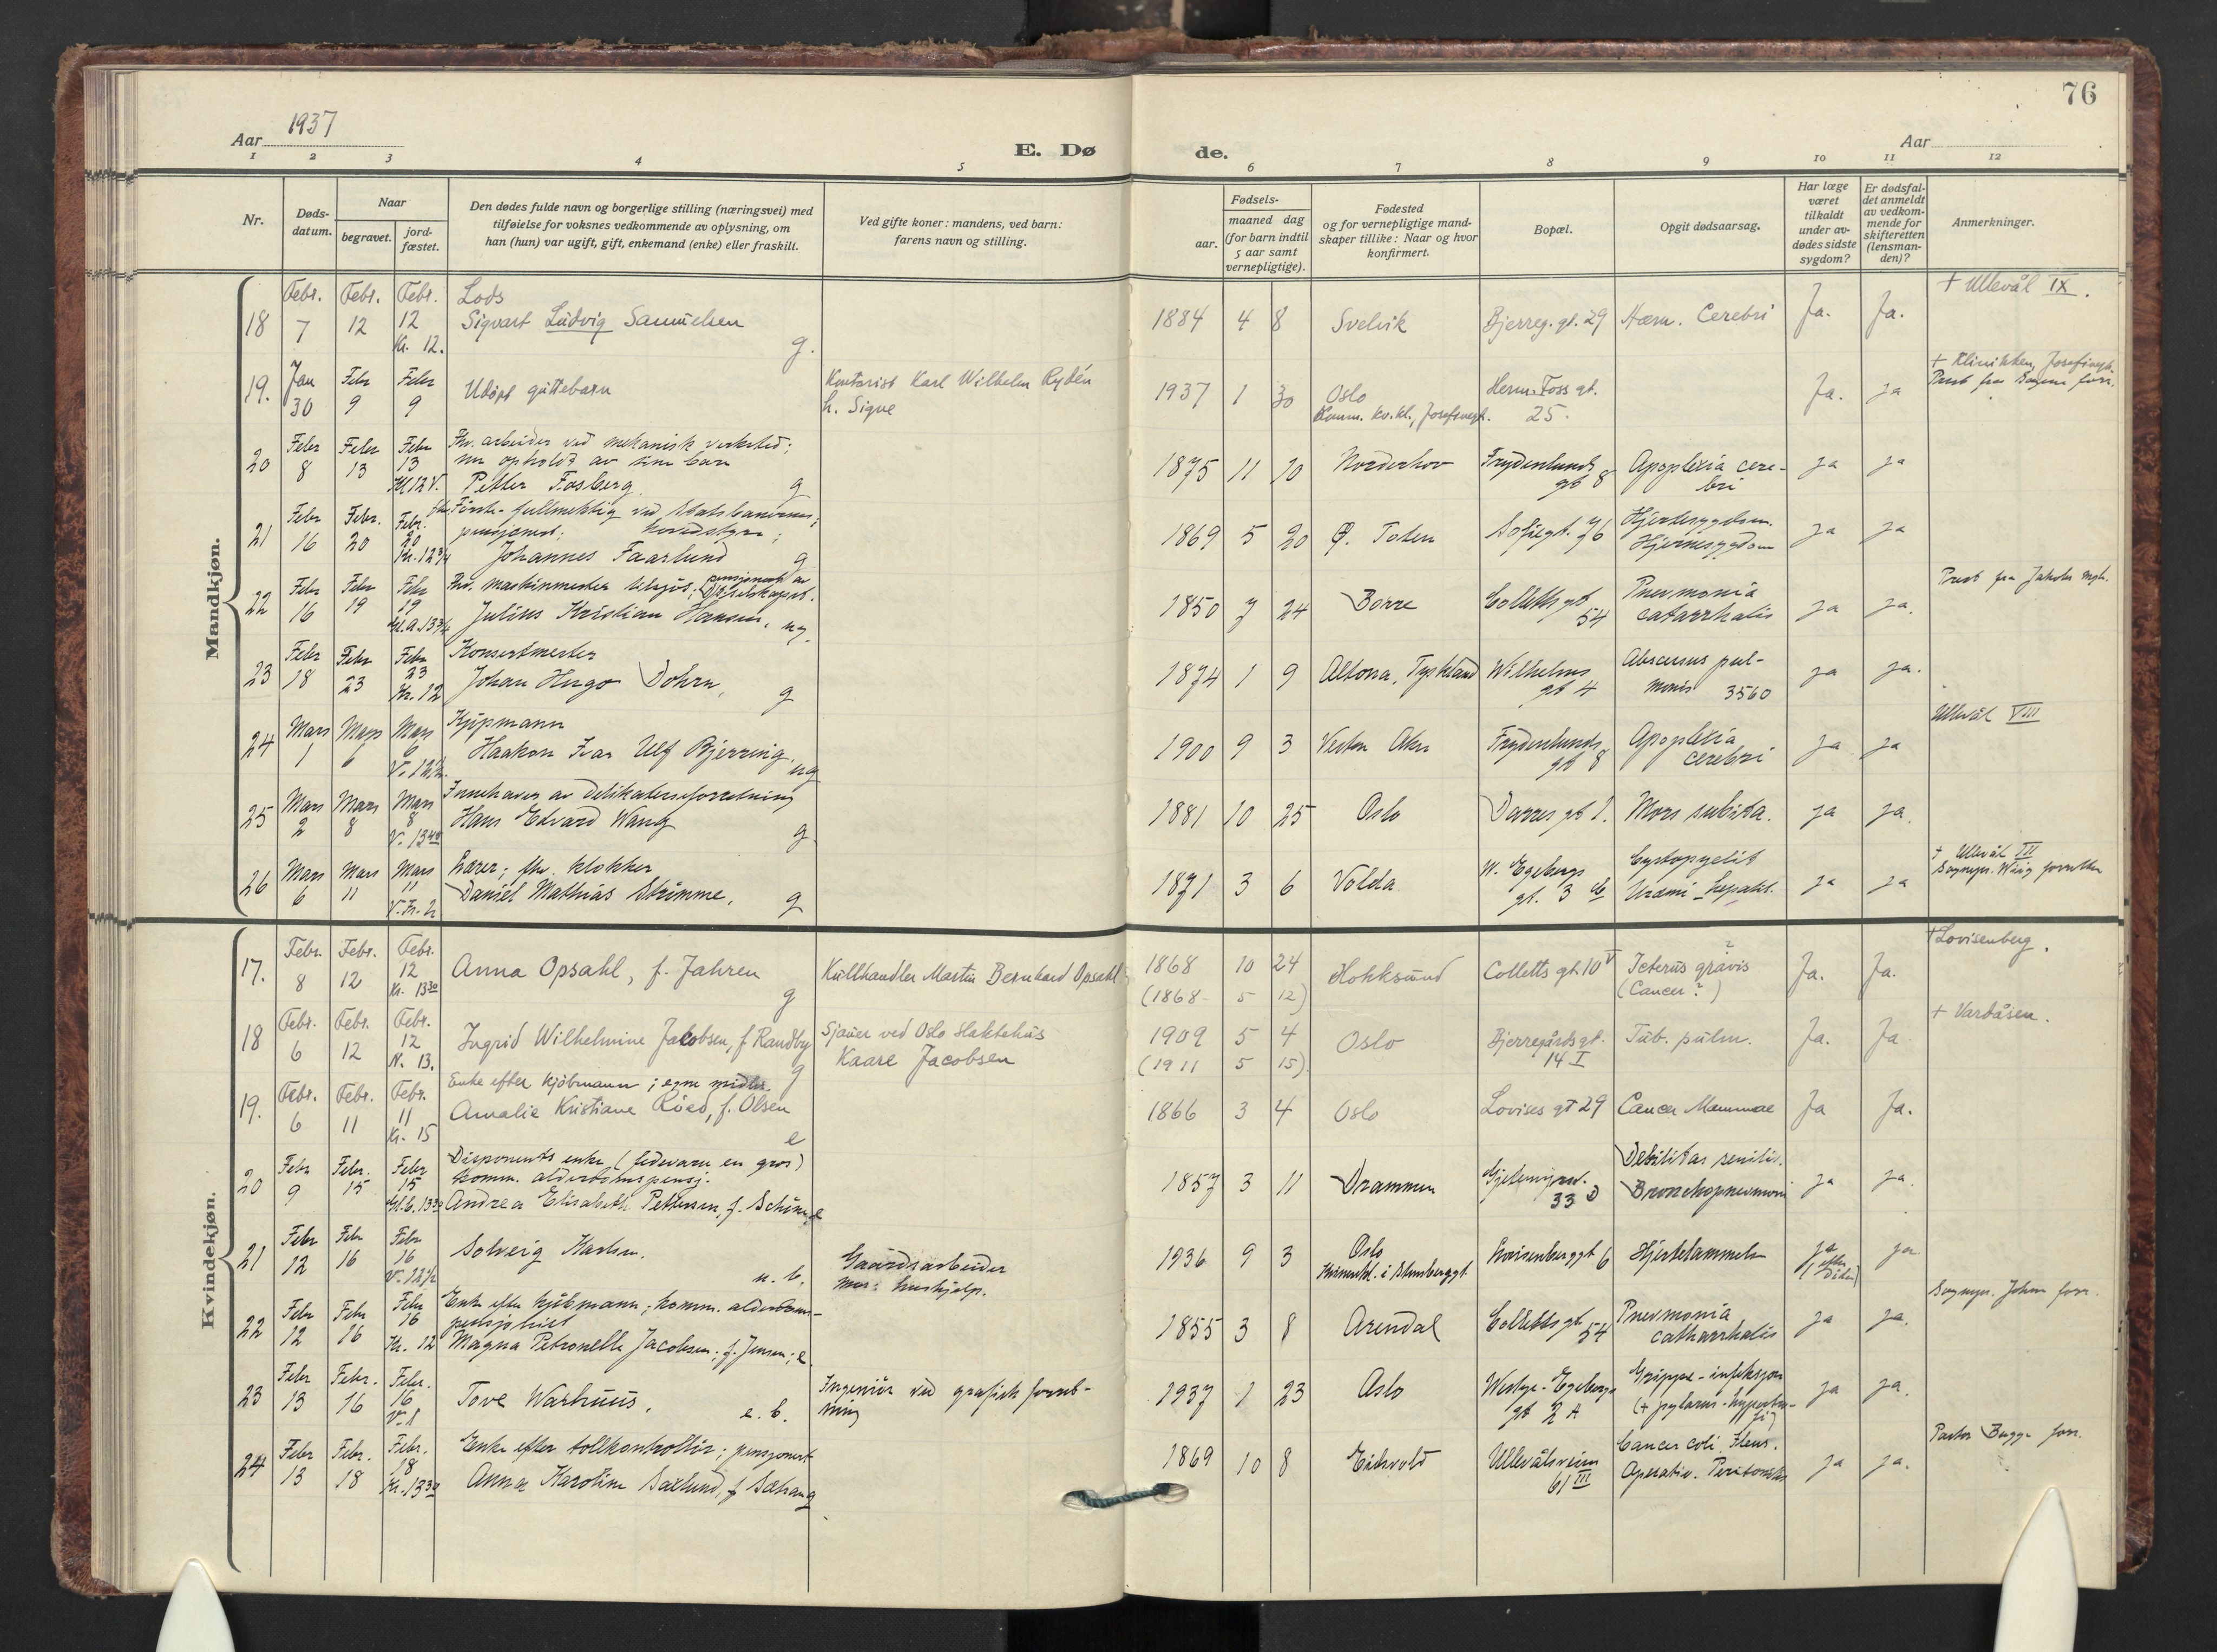 76
Aar 1937
E. Døde.
Aar
1 2 3 4 5 6 7 8 9 10 11 12
Nr.
Døds-
datum.
Naar
begravet.
jord-
fæstet.
Den dødes fulde navn og borgerlige stilling (næringsvei) med
tilføielse for voksnes vedkommende av oplysning, om
han (hun) var ugift, gift, enkemand (enke) eller fraskilt.
Ved gifte koner: mandens, ved barn:
farens navn og stilling.
Fødsels-
aar.
maaned dag
(for barn indtil
5 aar samt
vernepligtige).
Fødested
og for vernepligtige mand-
skaper tillike: Naar og hvor
konfirmert.
Bopæl.
Opgit dødsaarsag.
Har læge
været
tilkaldt
under av-
dødes sidste
sygdom?
Er dødsfal-
det anmeldt
av vedkom-
mende for
skifteretten
(lensman-
den)?
Anmerkninger.
Mandkjøn.
Febr. Febr. Febr. Lods + Ullevål IX.
18 7 12 12 Sigvart Ludvig Samuelsen 1884 4 8 Svelvik Bjerreg. gt. 29 Hæm. Cerebri Ja. Ja.
Kr. 12. g.
19. Jan 30 Febr 9 Febr 9 Udøpt guttebarn
Kontorist Karl Wilhelm Rydén
h. Signe
1937 1 30 Oslo Herm. Foss gt. 25. Ja. ja
Komm. kv. kl., Josefinesgt.
+ Klinikken, Josefinegt.
Prest fra Sagene forr.
20 Febr 8 Febr 13 Febr 13 Fhv. arbeider ved mekanisk verksted;
nu ophold av sine barn
Petter Fosberg g
1875 11 10 Norderhov Frydenlunds gt 8 Apoplexia cere-
bri ja ja
21 Febr 16 Febr. 20 Febr. 20 Første-fullmektig ved Statsbanernes
hovedstyre;
pensjonist.
Kr. 12 3/4 Johannes Faarlund g
1869 5 20 Ø. Toten Sofiegt. 76 Hjertesygdom.
Hjernesygdom ja ja
22 Febr 16 Febr 19 Febr 19 Fhv. maskinmester tilsjøs; pensjonist av
Julius Kristian Hansen, ug.
1850 7 24 Borre Colletts gt 54 Pneumonia
catarrhalis ja ja.
Prest fra Jakobs mgh.
23 Febr 18 Febr 23 Febr 23 Konsertmester
Kr. 12 Johan Hugo Dohrn, g
1874 1 9 Altona, Tyskland Wilhelms gt 4 Abscessus pul-
monis 3560 ja ja.
24 Mars 1 Mars 6 Mars 6 Kjøpmann
Haakon Ivar Ulf Bjerring, ug
1900 9 3 Vestre Aker Frydenlunds gt 8 Apoplexia
cerebri ja ja
Ullevål VIII
25 Mars 2 Mars 8 Mars 8 Innehaver av delikatesseforretning
V. 13 40 Hans Edvard Wang g
1881 10 25 Oslo Darres gt 1. Mors subita. ja ja.
26 Mars 6 Mars 11 Mars 11 Lærer; fhv. klokker
Daniel Mathias Strømme, g
1871 3 6 Volda W. Egebergs gt. 3 Cystopyelit
Uræmi ja ja
+ Ullevål III
Kvindekjøn.
17. Febr 8 Febr. 12 Febr. 12 Anna Opsahl, f. Jahren g
Kr. 13 30
Kullhandler Martin Bernhard Opsahl
1868 10 24 Hokksund Colletts gt. 10 V Icterus gravis
(1868 5 12) (Cancer?) Ja. Ja.
+ Lovisenberg.
18 Febr. 6 Febr. 12 Febr. 12 Ingrid Wilhelmine Jacobsen, f Randby g
N. 13.
Sjauer ved Oslo slaktehus
Kaare Jacobsen
1909 5 4 Oslo Bjerregårdsgt. 14 I Tub. pulm. Ja. Ja
(1911 5 15)
+ Vardåsen.
19. Febr. 6 Febr. 11 Febr. 11 Enke efter kjøbmann; egne midler.
Amalie Kristiane Röed, f. Olsen e
Kr. 15
1866 3 4 Oslo Lovises gt 29 Cancer Mammae Ja Ja.
20 Febr 9 Febr. 15 Febr 15 Disponents enke (fedevarer en gros)
Komm. alderdomspensj.
Andrea Elisabeth Pettersen, f. e
1857 3 11 Drammen 33 D Debilitas senilis.
Bronchopneumoni ja ja.
21 Febr 12 Febr 16 Febr 16 Solveig Karlsen. u. b.
V. 12 1/2
Gaardsarbeider
mor: hushjelp.
1936 9 3 Oslo Lovisenberggt 6 Hjertelammelse ja (efter døden) ja
22 Febr 12 Febr 16 Febr 16 Enke efter kjøbmann; komm. alderdoms-
pensjonist
Kr. 12 Magna Petronelle Jacobsen; f. Jensen; e
1855 3 8 Arendal Colletts gt 54 Pneumonia
catharrhalis ja ja.
Sogнepr. Johns forr.
23 Febr 13 Febr. 16 Febr. 16 Tove Warhuus, e. b.
V. 1
Ingeniør ved grafisk forret-
ning
1937 1 23 Oslo Westye-Egebergs gt 2 A Grippe-infeksjon
(+ pylorus-hypertro-
fi) ja ja.
24 Febr 13 Febr. 18 Febr. 18 Enke efter tollkontrollør; pensjonist
Kr. 13 30 Anna Karoline Saxlund, f
1869 10 8 Eidsvold Ullevålsveien 61 III Cancer coli. Ileus.
Operatio. Peritonitis ja ja.
Pastor Bugge forr.